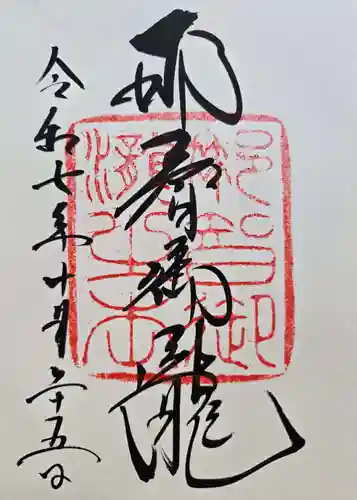 那智御瀧
令和七年十月二十五日